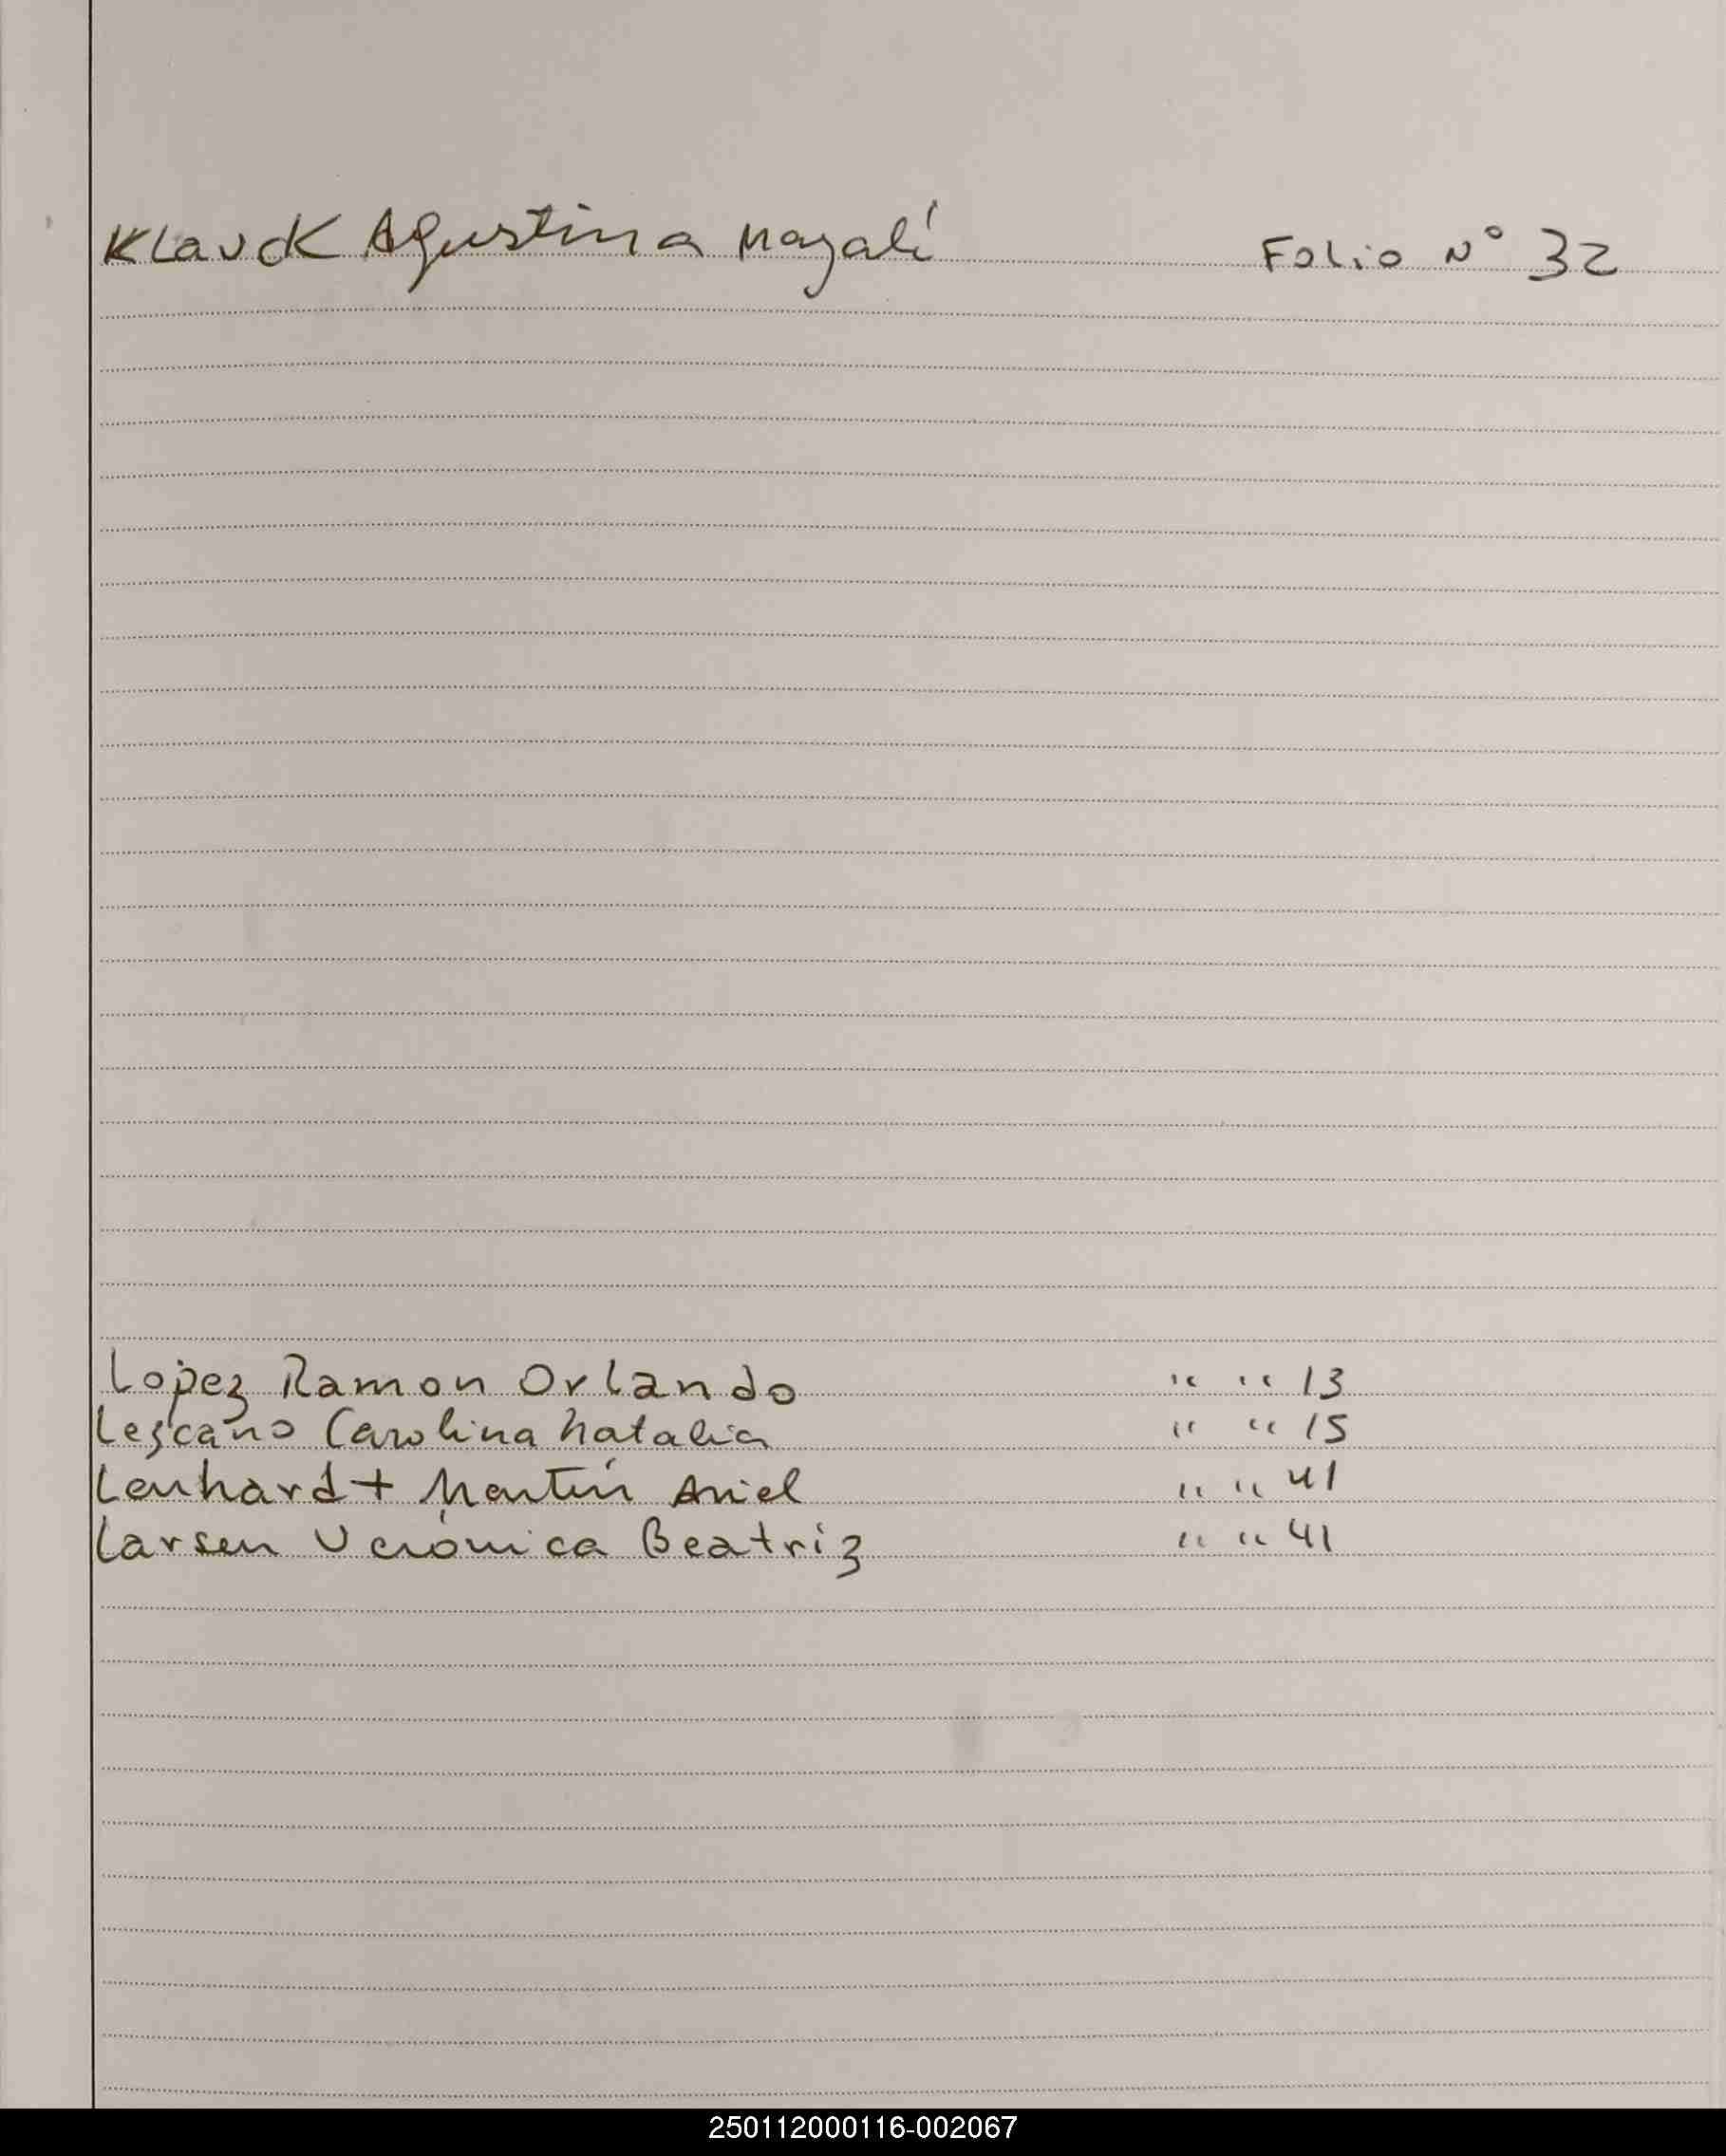 Klauck Agustina Magalí Folio N° 32
Lopez Ramon Orlando " " 13
Lezcano Carolina Natalia " " 15
Lenhardt Martín Ariel " " 41
Larsen Verónica Beatriz " " 41
250112000116-002067